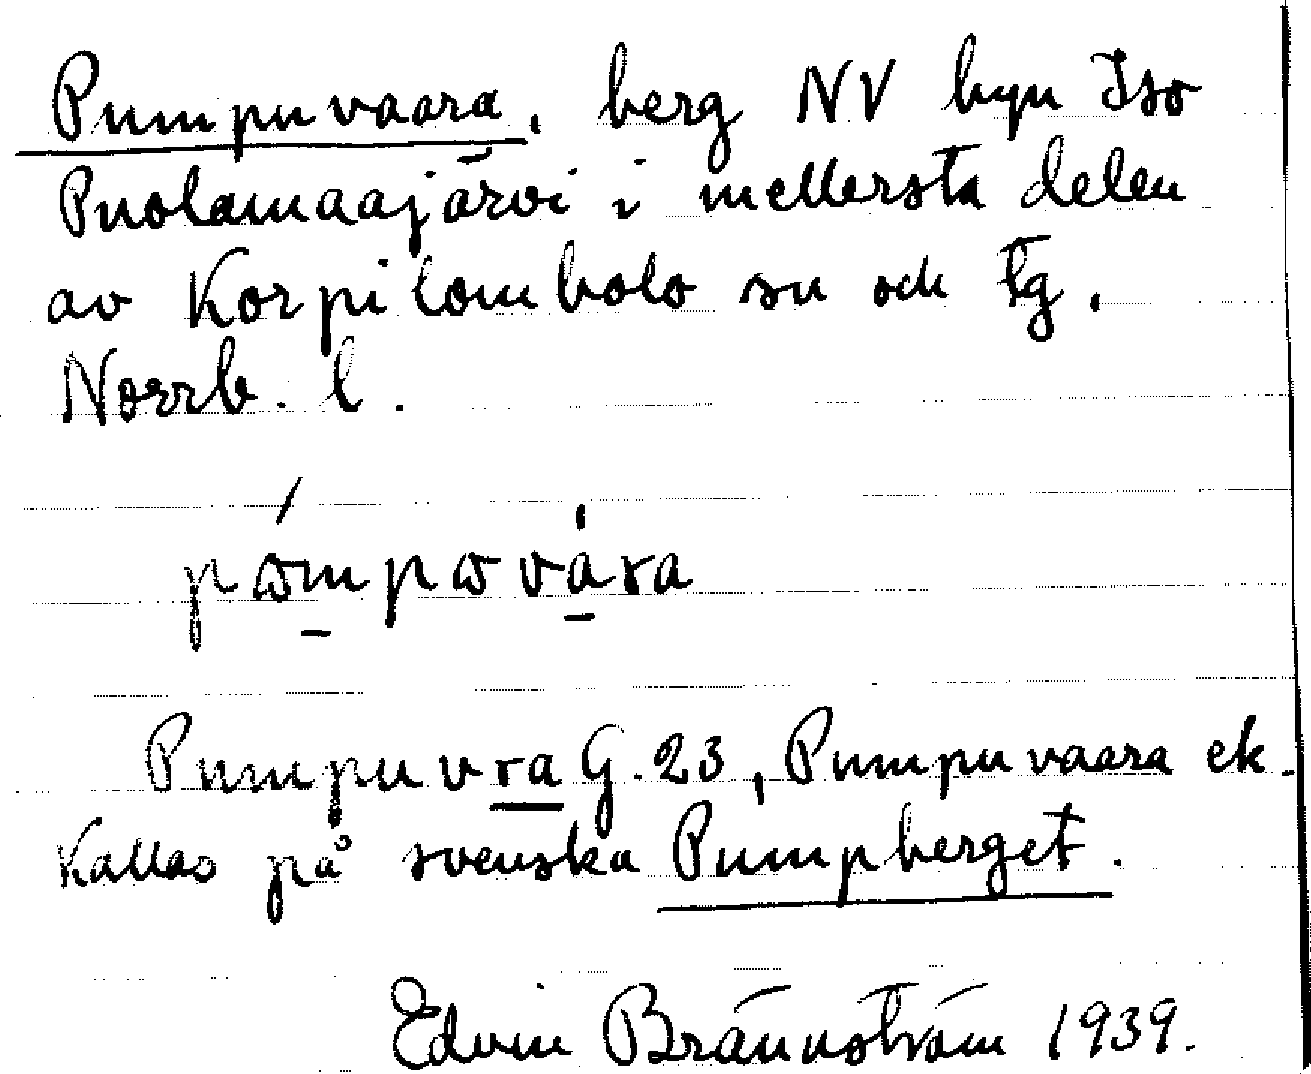 Pumpuvaara, berg NV byn Iso
Puolamaajärvi i mellersta delen
av Korpilombolo sn och tg.
Norrb. l.
Pumpuvra G. 23, Pumpuvaara ek.
Kallas på svenska Pumpberget.
Edvin Brännström 1939.